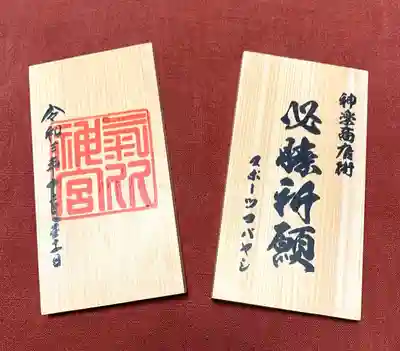 氣比
神宮
令和三年
神楽商店街
必勝祈願
スポーツコバヤシ